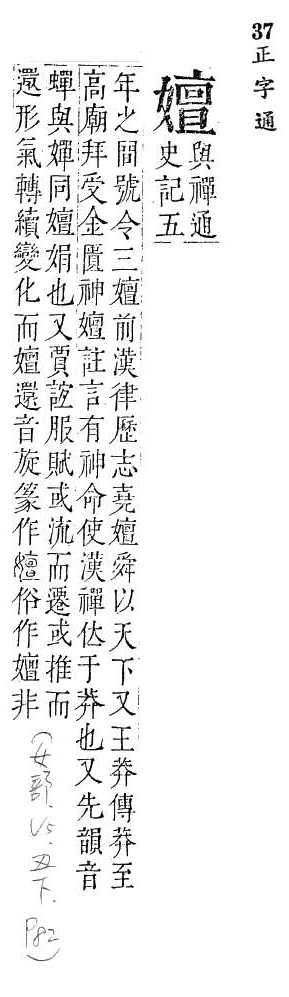 37正字通
嬗
與禪通
史記五
年之間號令三嬗前漢律歷志堯嬗舜以天下又王莽傳莽至
高廟拜受金匱神嬗註言有神命使漢禪位于莽也又先韻音
蟬與嬋同嬗娟也又賈誼服賦或流而遷或推而
還形氣轉續變化而嬗還音旋篆作嬗俗作嬗非
(女部.VS.丑下.P82)